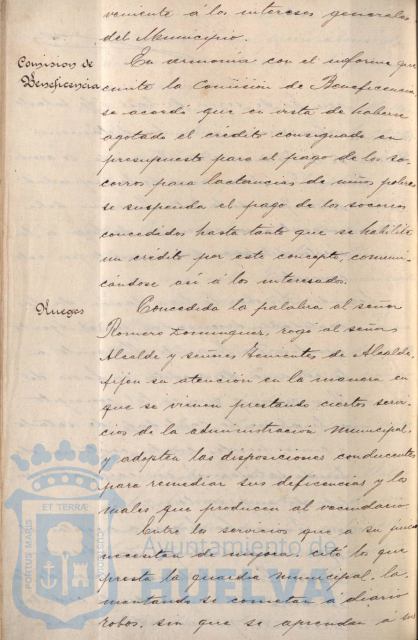 veniente á los intereses generales
del Municipio.
Comision de
Beneficencia
En armonía con el informe que
emite la Comisión de Beneficencia
se acordó que en vista de haberse
agotado el crédito consignado en
presupuesto para el pago de los so-
corros para lactancias de niños pobres
se suspenda el pago de los socorros
concedidos hasta tanto que se habilite
un crédito por este concepto, comuni-
cándose así á los interesados.
Ruegos
Concedida la palabra al señor
Romero Dominguez, rogó al señor
Alcalde y señores Tenientes de Alcalde,
fijen su atención en la manera en
que se vienen prestando ciertos servi-
cios de la administración municipal,
y adopten las disposiciones conducentes
para remediar sus deficencias y los
males que producen al vecindario.
Entre los servicios que á su juicio
necesitan de mejora, cita los que
presta la guardia municipal, la-
mentando se cometan á diario
robos, sin que se aprendan á su
PORTUS MARIS
ET TERRÆ
CUSTODIA
Ayuntamiento de
HUELVA